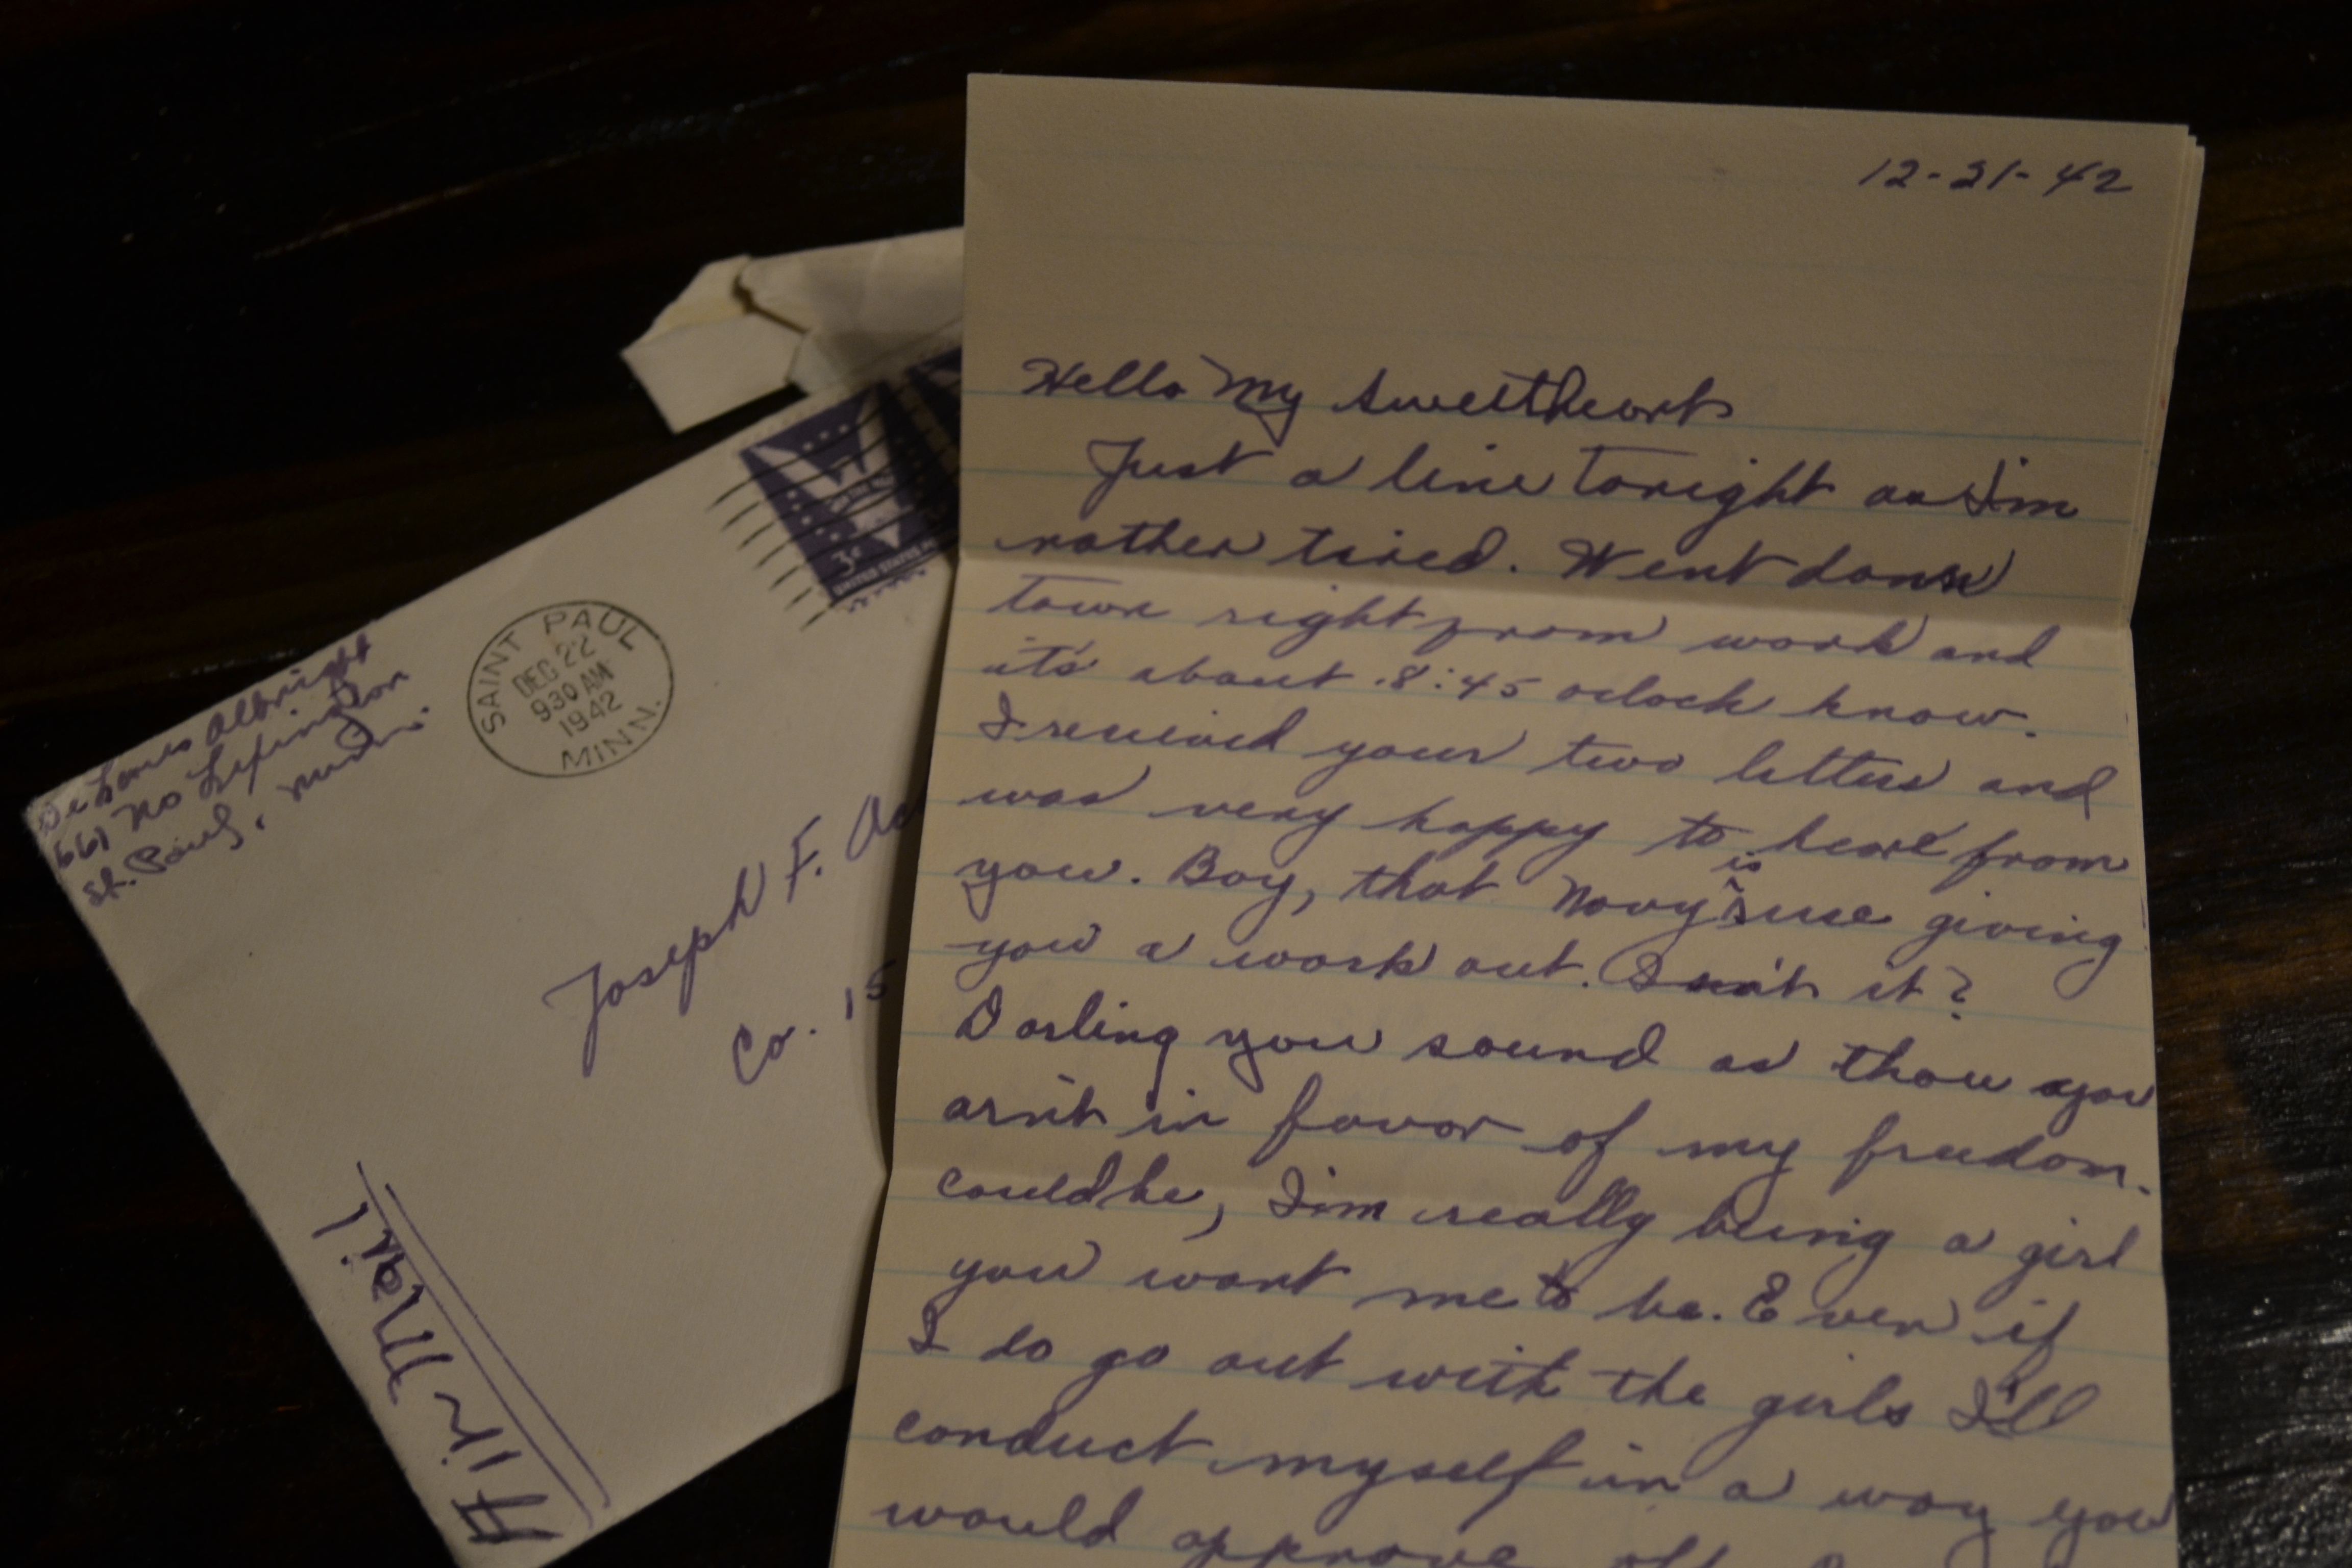 12-21-42
Hello My Sweetheart
Just a line tonight as I'm
rather tired. Went down
town right from work and
it's about 8:45 oclock know.
I received your two letters and
was very happy to heare from
you. Boy, that Navy is sure giving
you a work out. Isn't it?
Darling you sound as thou you
arn't in favor of my freedom.
could be, I'm really being a girl
you want me to be. Even if
I do go out with the girls I'll
conduct myself in a way you
would approve off
De Lores Albright
661 No Lexington
St. Paul, Minn.
SAINT PAUL
DEC 22
930 AM
1942
MINN.
3¢
UNITED STATES
Joseph F.
Co. 15
Air Mail